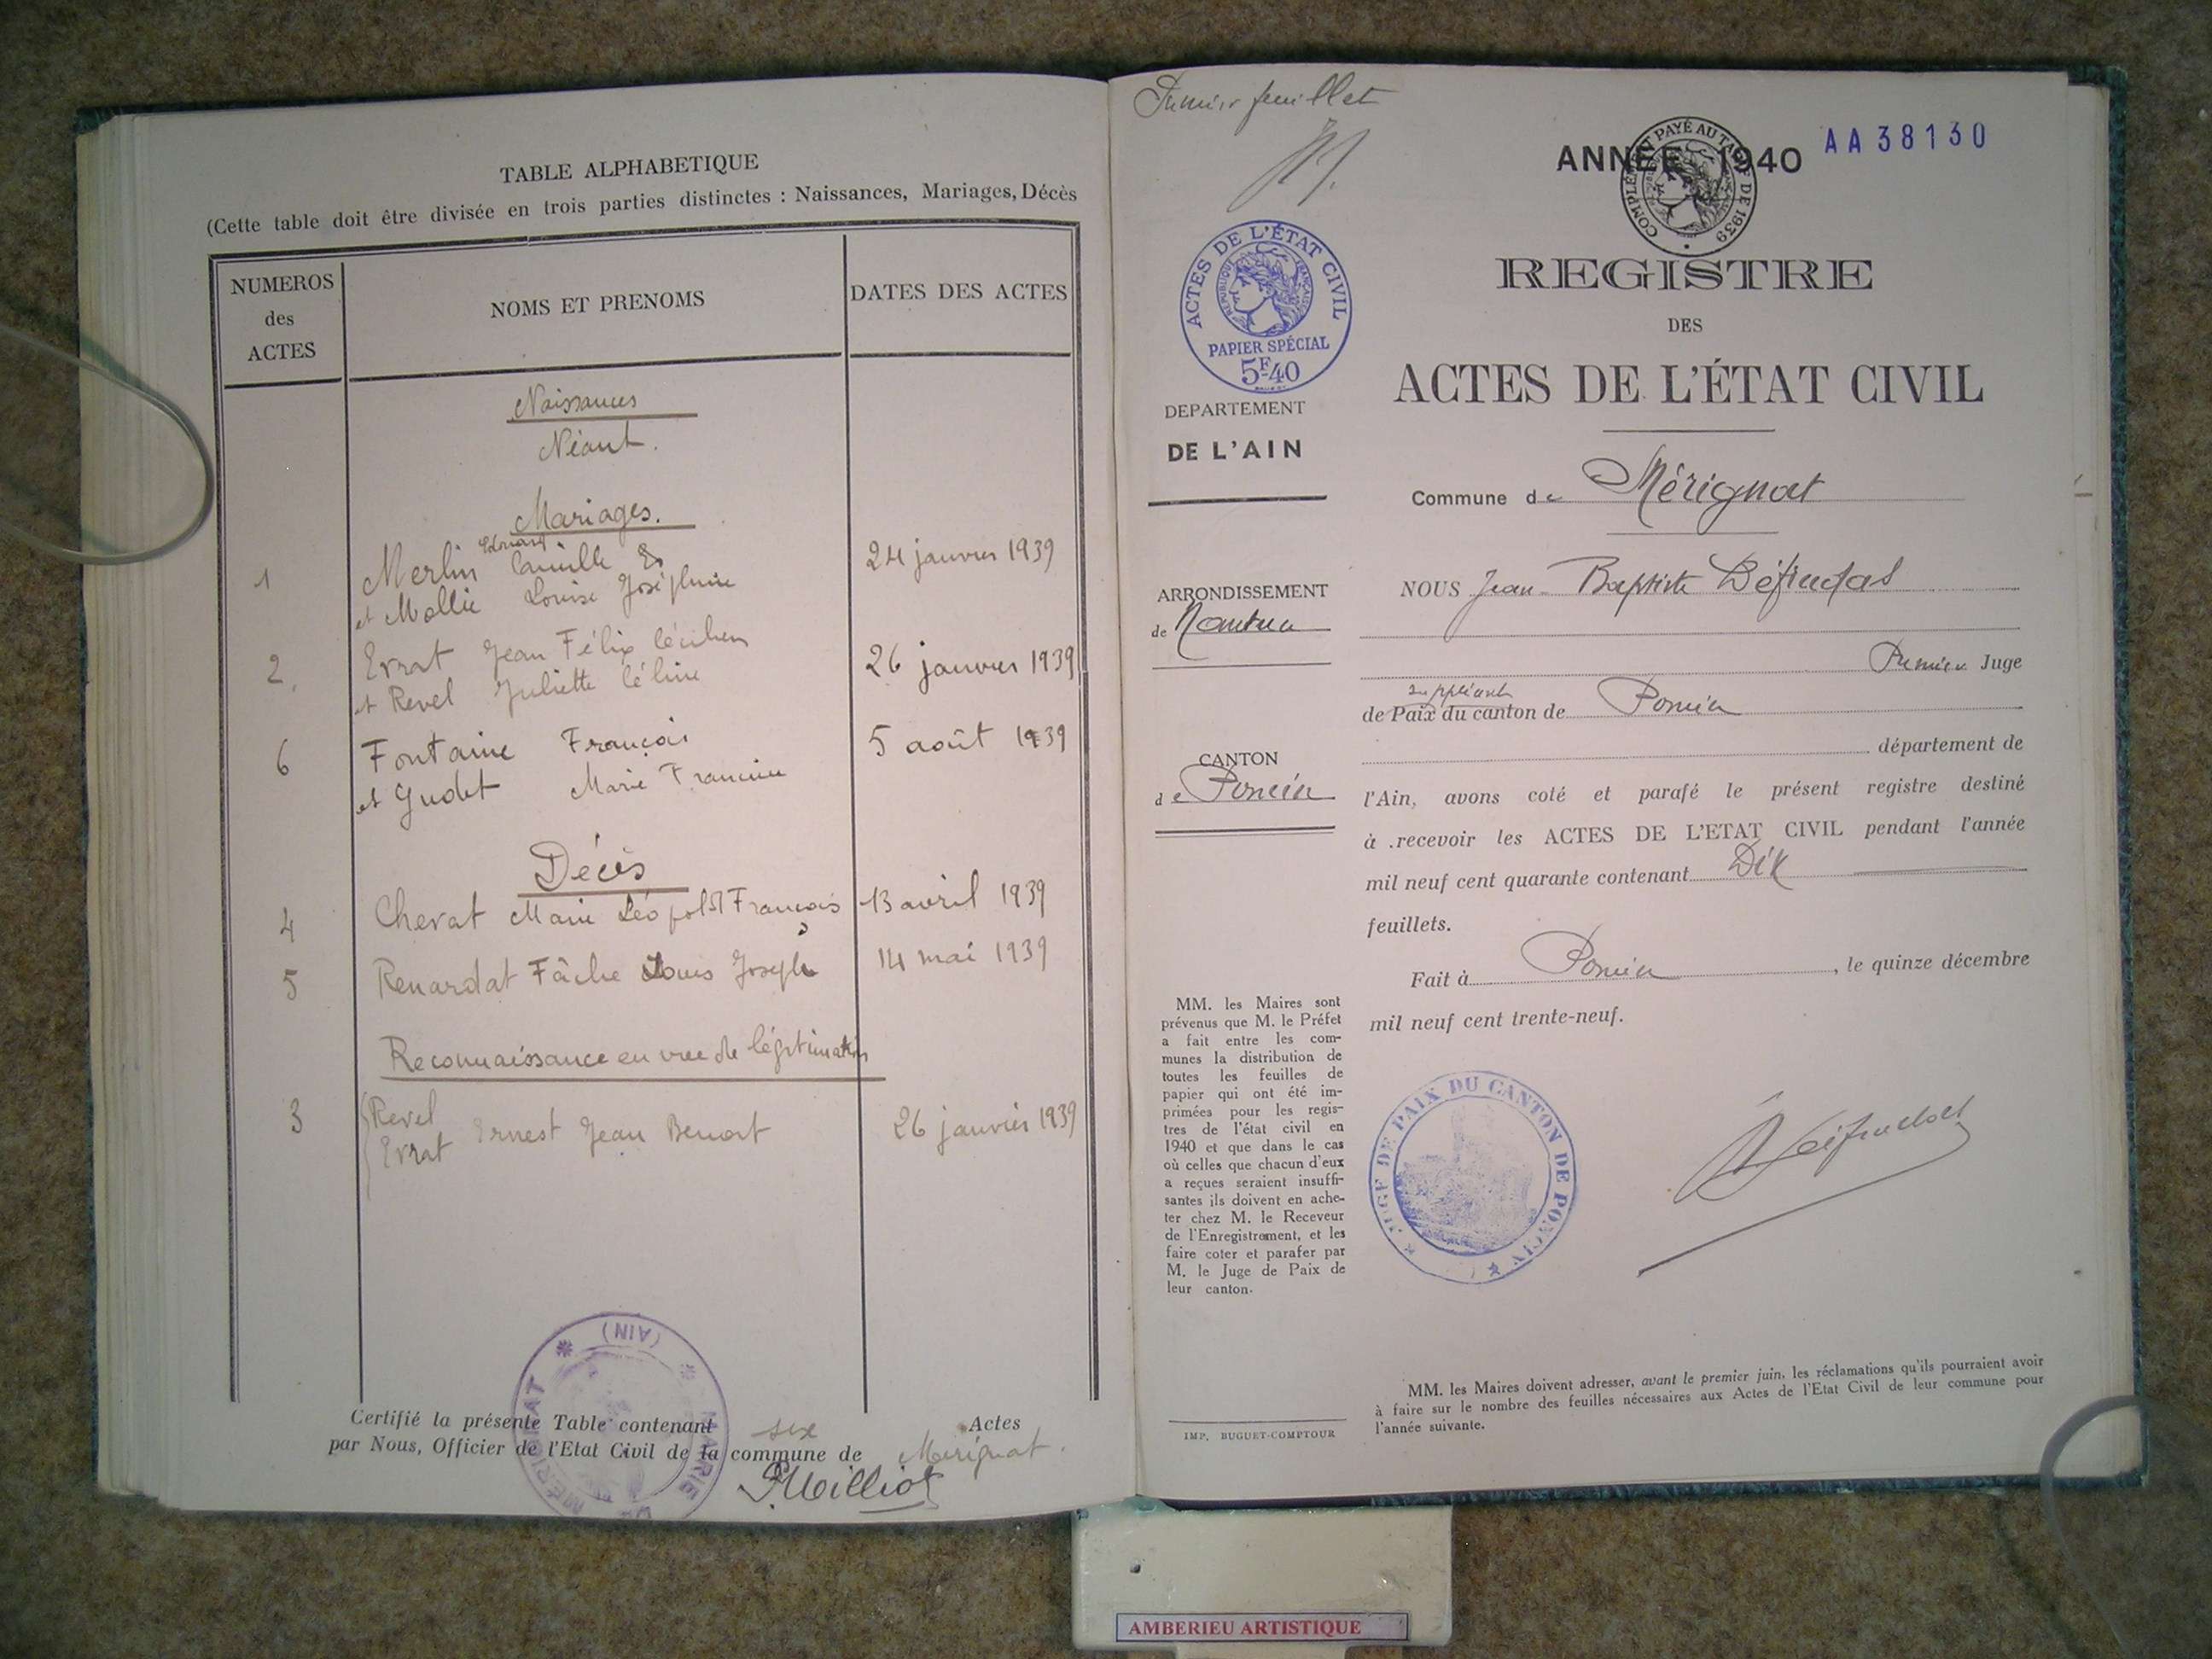 TABLE ALPHABETIQUE
(Cette table doit être divisée en trois parties distinctes : Naissances, Mariages, Décès
NUMEROS
des
ACTES
NOMS ET PRENOMS
DATES DES ACTES
Naissances
Néant.
Mariages.
1 Merlin Edouard Camille 24 janvier 1939
et Mollie Louise Joséphine
2. Errat Jean Félix 26 janvier 1939
et Revel Juliette Céline
6 Fontaine François 5 août 1939
et Gudet Marie Francine
Décès
4 Cherat Marie Léopold François 13 avril 1939
5 Renardat Fâche Louis Joseph 14 mai 1939
Reconnaissance en vue de légitimation
3 Revel
Errat Ernest Jean Benoit 26 janvier 1939
Certifié la présente Table contenant six Actes
par Nous, Officier de l'Etat Civil de la commune de Merignat.
MAIRIE DE MÉRIGNAT (AIN)
Premier feuillet
ANNÉE 1940
AA38130
COMPLÉMENT PAYÉ AU TARIF DE 1939
ACTES DE L'ÉTAT CIVIL
REPUBLIQUE FRANÇAISE
PAPIER SPÉCIAL
5F40
REGISTRE
DES
ACTES DE L'ÉTAT CIVIL
DEPARTEMENT
DE L'AIN
Commune de Mérignat
ARRONDISSEMENT
de Nantua
CANTON
de Poncin
NOUS Jean-Baptiste Défindat
Premier Juge
suppléant
de Paix du canton de Poncin
département de
l'Ain, avons coté et parafé le présent registre destiné
à .recevoir les ACTES DE L'ETAT CIVIL pendant l'année
mil neuf cent quarante contenant Dix
feuillets.
Fait à Poncin, le quinze décembre
mil neuf cent trente-neuf.
MM. les Maires sont
prévenus que M. le Préfet
a fait entre les com-
munes la distribution de
toutes les feuilles de
papier qui ont été im-
primées pour les regis-
tres de l'état civil en
1940 et que dans le cas
où celles que chacun d'eux
a reçues seraient insuffi-
santes ils doivent en ache-
ter chez M. le Receveur
de l'Enregistrement, et les
faire coter et parafer par
M. le Juge de Paix de
leur canton.
JUGE DE PAIX DU CANTON DE PONCIN
MM. les Maires doivent adresser, avant le premier juin, les réclamations qu'ils pourraient avoir
à faire sur le nombre des feuilles nécessaires aux Actes de l'Etat Civil de leur commune pour
l'année suivante.
IMP. BUGUET-COMPTOUR
AMBERIEU ARTISTIQUE